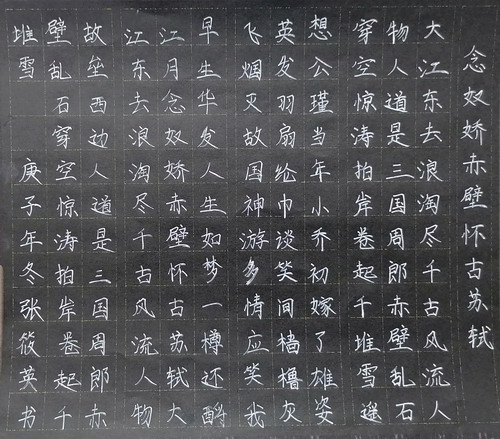 念奴娇赤壁怀古苏轼
大江东去浪淘尽千古风流人
物人道是三国周郎赤壁乱石
穿空惊涛拍岸卷起千堆雪遥
想公瑾当年小乔初嫁了雄姿
英发羽扇纶巾谈笑间樯橹灰
飞烟灭故国神游多情应笑我
早生华发人生如梦一樽还酹
江月念奴娇赤壁怀古苏轼大
江东去浪淘尽千古风流人物
故垒西边人道是三国周郎赤
壁乱石穿空惊涛拍岸卷起千
堆雪 庚子年冬张筱英书